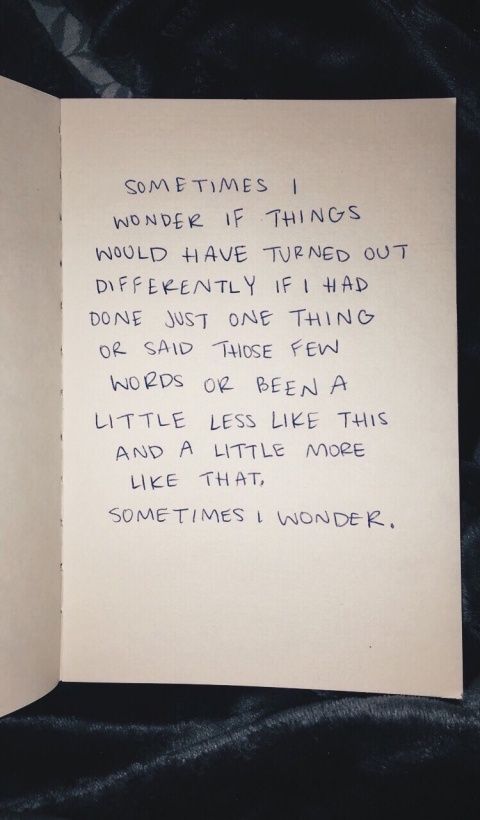 SOMETIMES I
WONDER IF THINGS
WOULD HAVE TURNED OUT
DIFFERENTLY IF I HAD
DONE JUST ONE THING
OR SAID THOSE FEW
WORDS OR BEEN A
LITTLE LESS LIKE THIS
AND A LITTLE MORE
LIKE THAT,
SOMETIMES I WONDER.